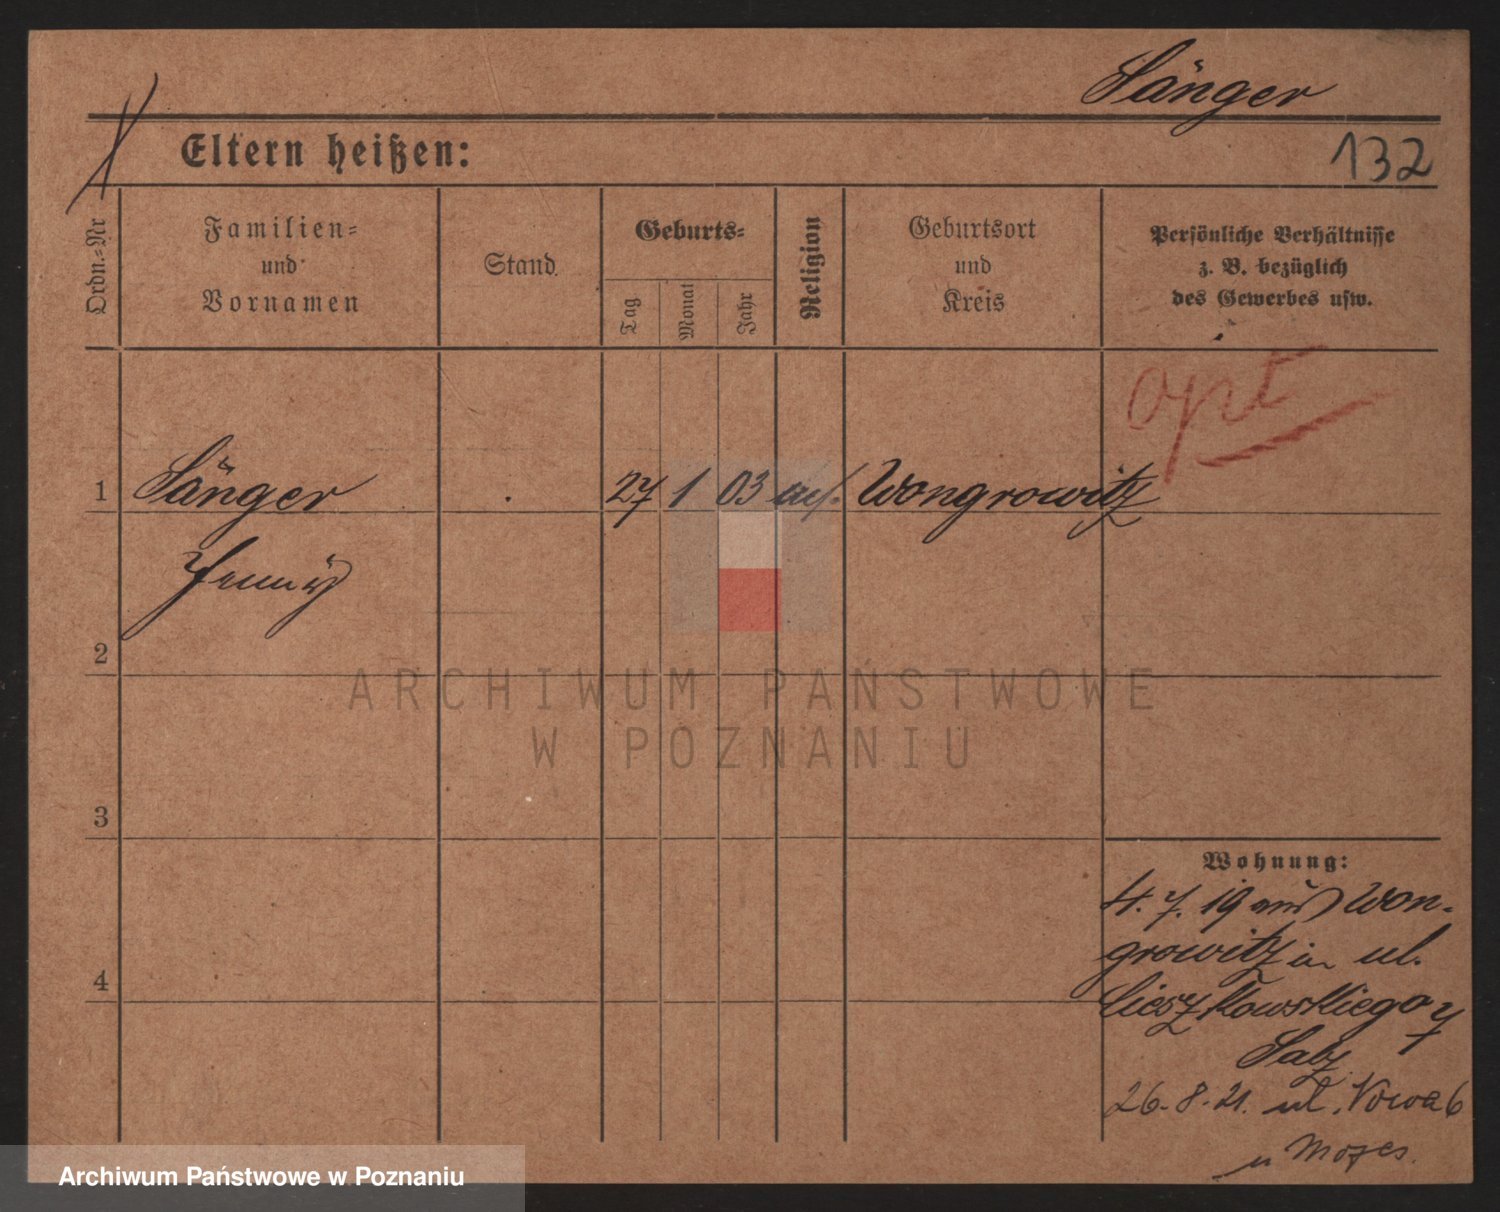 Sänger
Eltern heißen:
132
Ordn.=Nr
Familien=
und
Vornamen
Stand.
Geburts=
Tag
Monat
Jahr
Religion
Geburtsort
und
Kreis
Persönliche Verhältnisse
z. B. bezüglich
des Gewerbes usw.
opt
1 Sänger 27 1 03 Wongrowitz
Jenny
2
3
4
Wohnung:
4. 7. 19 aus Won-
growitz in ul.
Cieszkowskiego 7
Salz
26. 8. 21. ul. Nowa 6
u Mozes.
ARCHIWUM PAŃSTWOWE
W POZNANIU
Archiwum Państwowe w Poznaniu